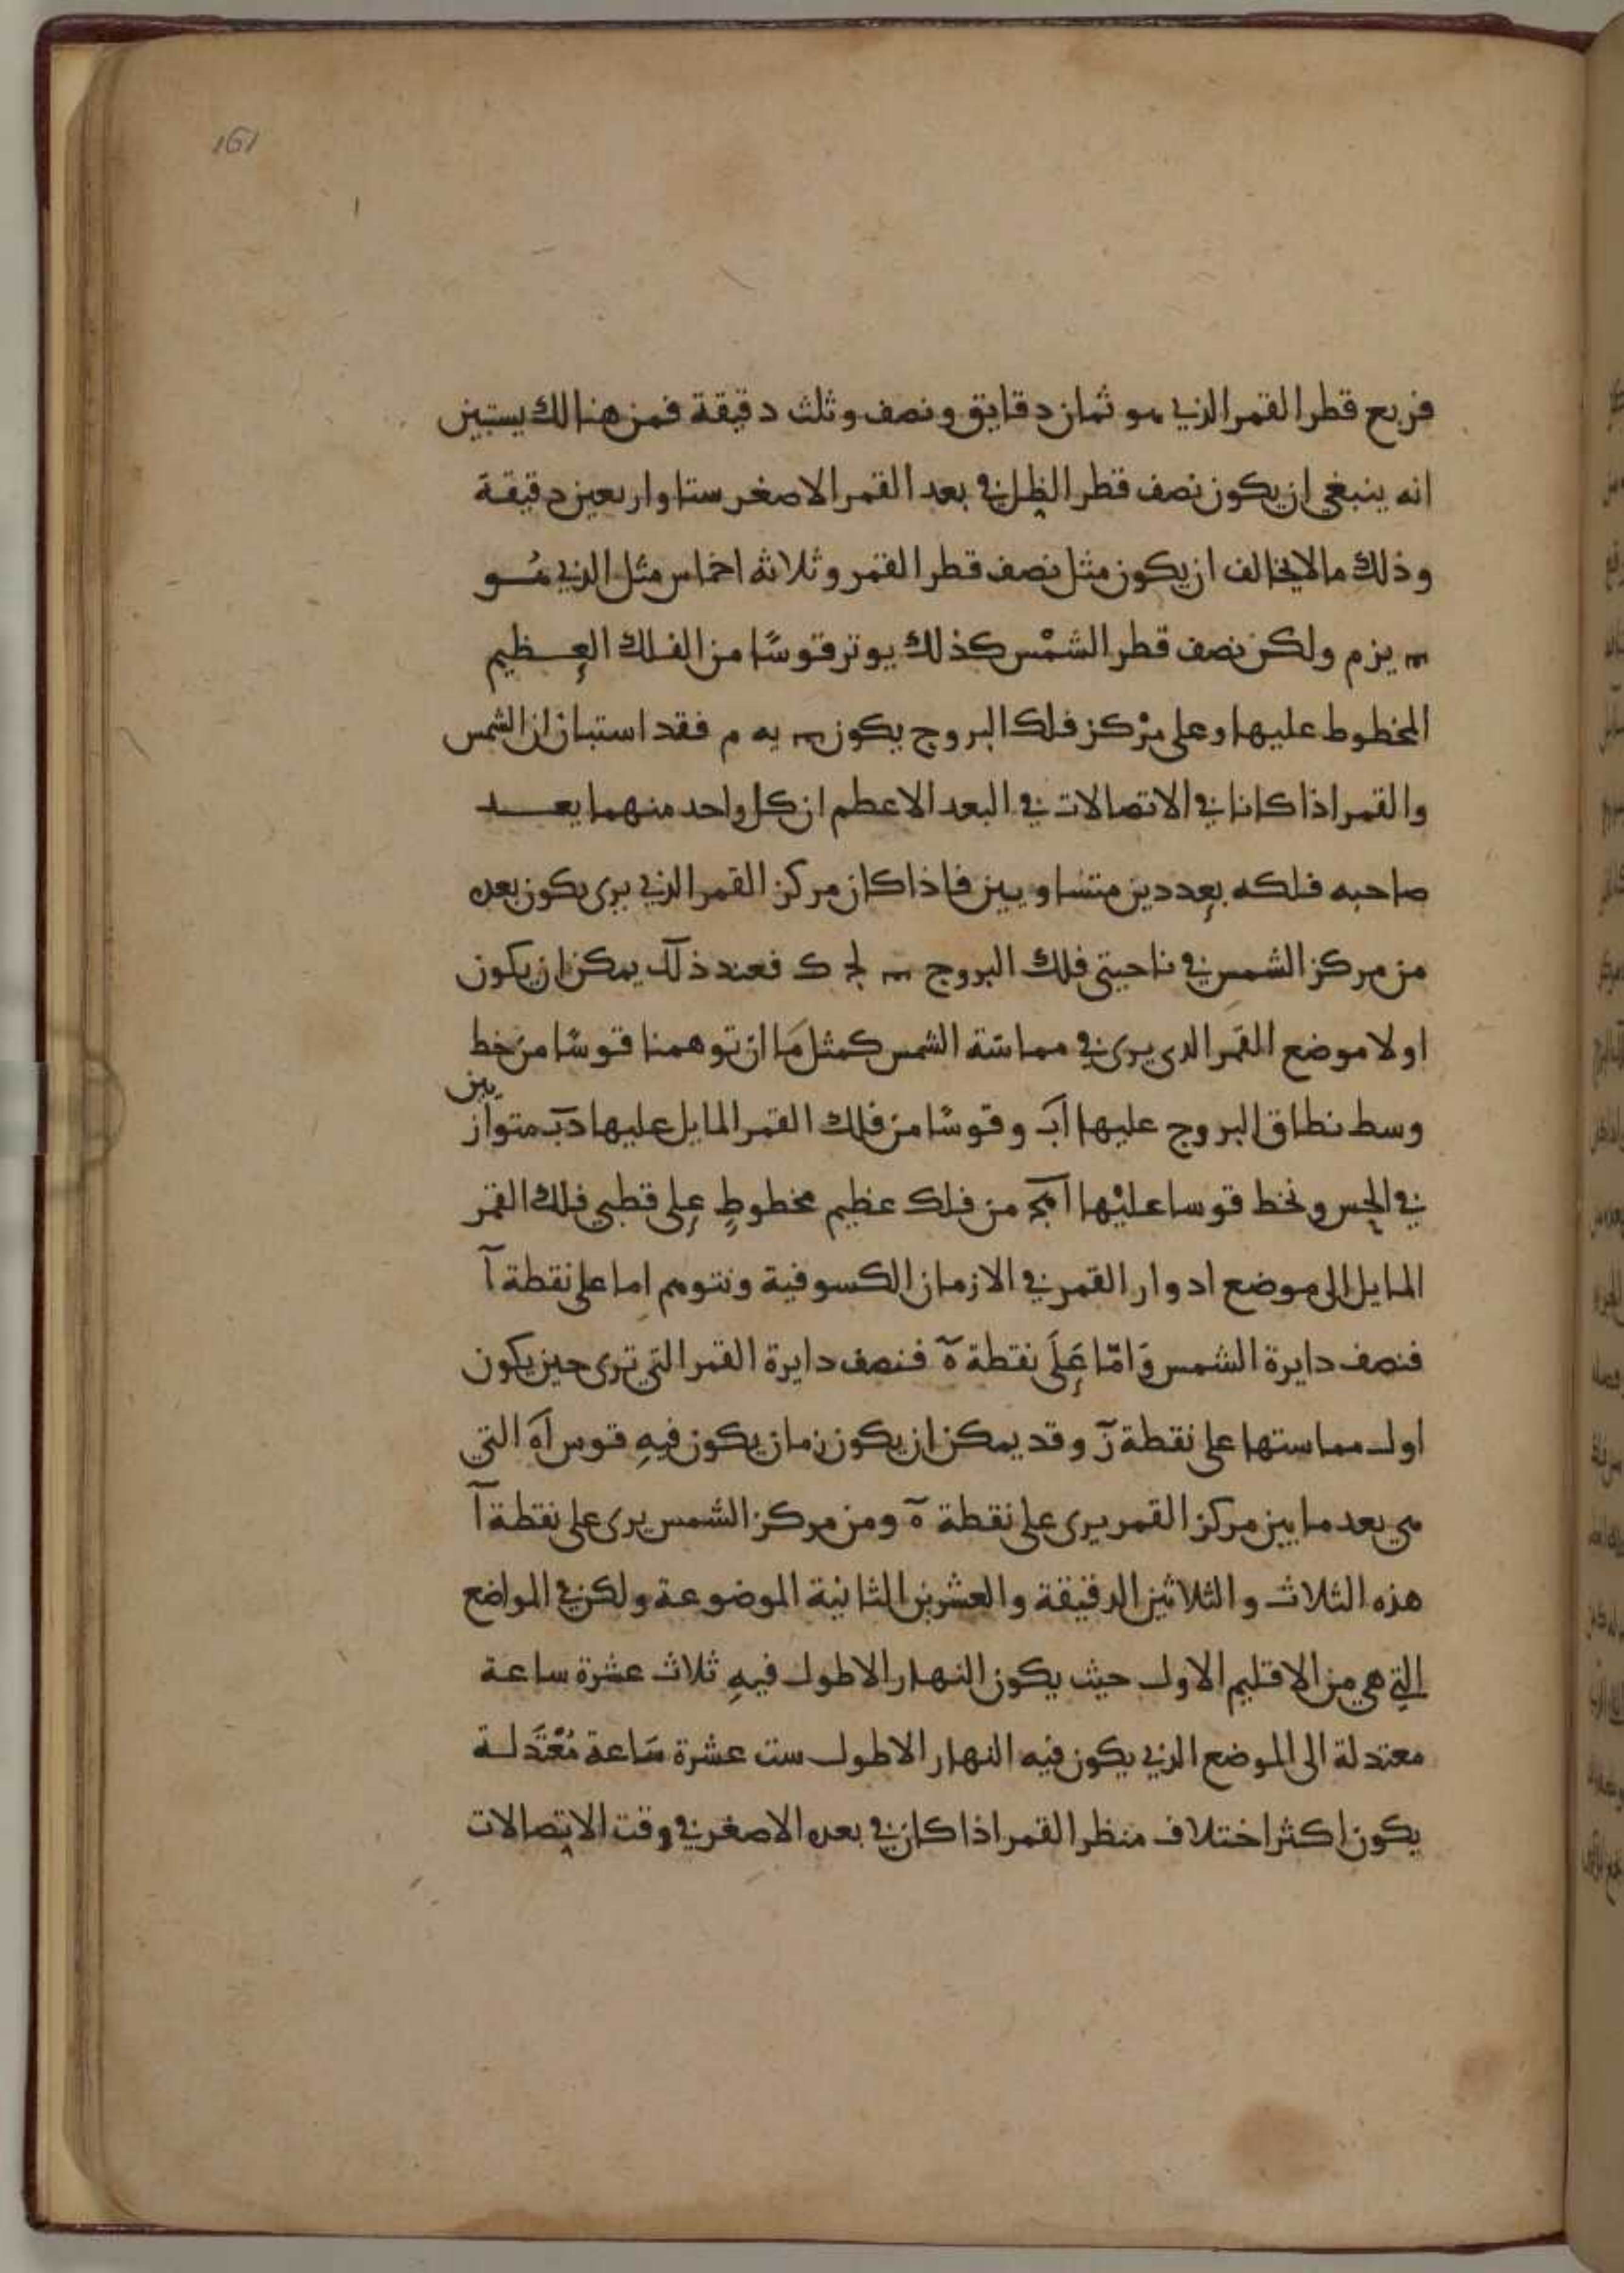 161
فربع قطر القمر الذي هو ثمان دقايق ونصف وثلث دقيقة فمن هنالك يستبين
انه ينبغي ان يكون نصف قطر الظل في بعد القمر الاصغر ستا واربعين دقيقة
وذلك ما لا يخالف ان يكون مثل نصف قطر القمر وثلاثه اخماس مثل الذي هُو
يزم ولكن نصف قطر الشمْس كذلك يوتر قوسًا من الفلك العظيم
المخطوط عليها وعلى مرْكز فلك البروج يكون يه م فقد استبان ان الشمس
والقمر اذا كانا في الاتصالات في البعد الاعظم ان كل واحد منهما يعد
صاحبه فلكه بعددين متساويين فاذا كان مركز القمر الذي يرى يكون بعده
من مركز الشمس في ناحيتي فلك البروج لج ك فعند ذلك يمكن ان يكون
اولا موضع القمر الدى يرى في مماسّة الشمس كمثل مَا ان توهمنا قوسًا من خط
وسط نطاق البروج عليها اَب وقوسًا من فلك القمر المايل عليها دَب متوازيين
في الحس ونخط قوسا عليْها من فلك عظيم مخطوطٍ على قطبي فلك القمر
المايل الى موضع ادوار القمر في الازمان الكسوفية ونتوهم اما على نقطة آ
فنصف دايرة الشمس وَامّا عَلَى نقطة هٓ فنصف دايرة القمر التي ترى حين يكون
اول مماستها على نقطة زٓ وقد يمكن ان يكون زمان يكون فيهِ قوس آه التي
هي بعد ما بين مركز القمر يرى على نقطة هٓ ومن مركز الشمس يرى على نقطة آ
هذه الثلاث والثلاثين الدقيقة والعشرين الثانية الموضوعة ولكن في المواضع
التي هي من الاقليم الاول حيث يكون النهار الاطول فيهِ ثلاث عشرة ساعة
معتدلة الى الموضع الذي يكون فيه النهار الاطول ست عشرة سَاعة مُعْتَدلة
يكون اكثر اختلاف منظر القمر اذا كان في بعده الاصغر في وقت الاتصالات